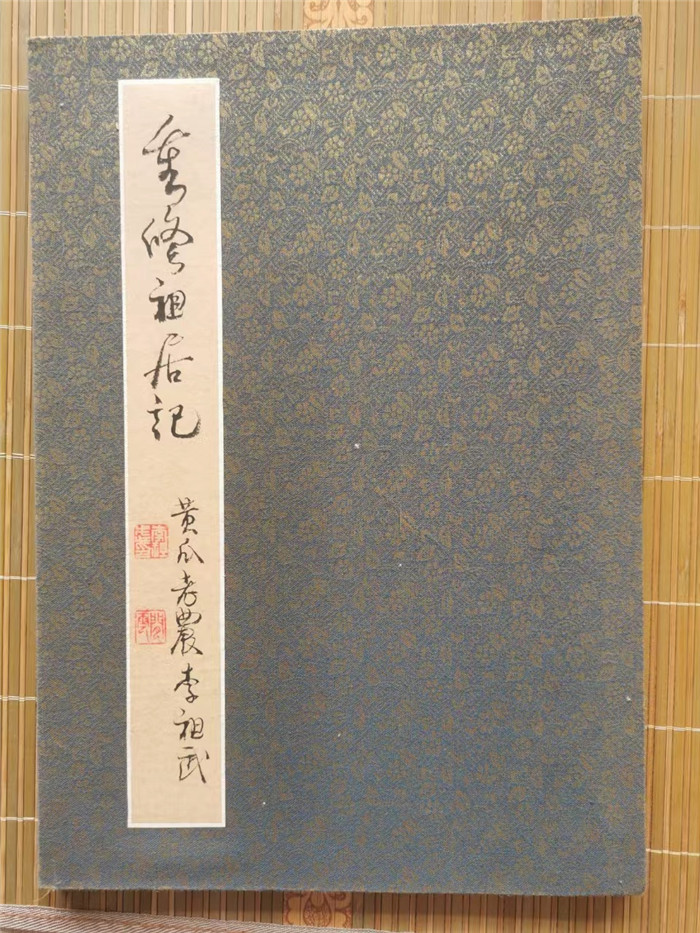 重修祖居记
黄瓜老農李祖武